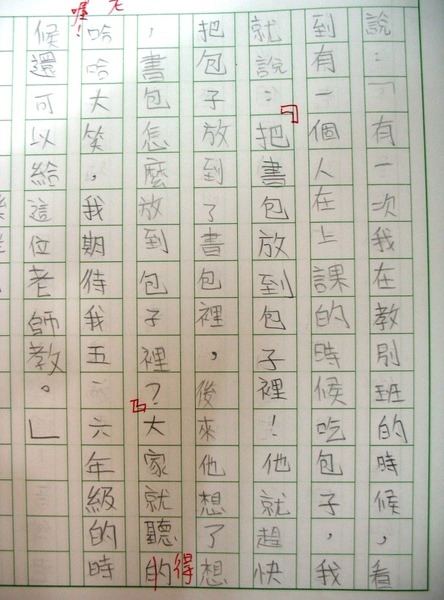 說：「有一次我在教別班的時候，看
到有一個人在上課的時候吃包子，我
就說：『把書包放到包子裡！他就趕快
把包子放到了書包裡，後來他想了想
，書包怎麼放到包子裡？』大家就聽的得
哈哈大笑，我期待我五、六年級的時
候還可以給這位老師教。」
喔！